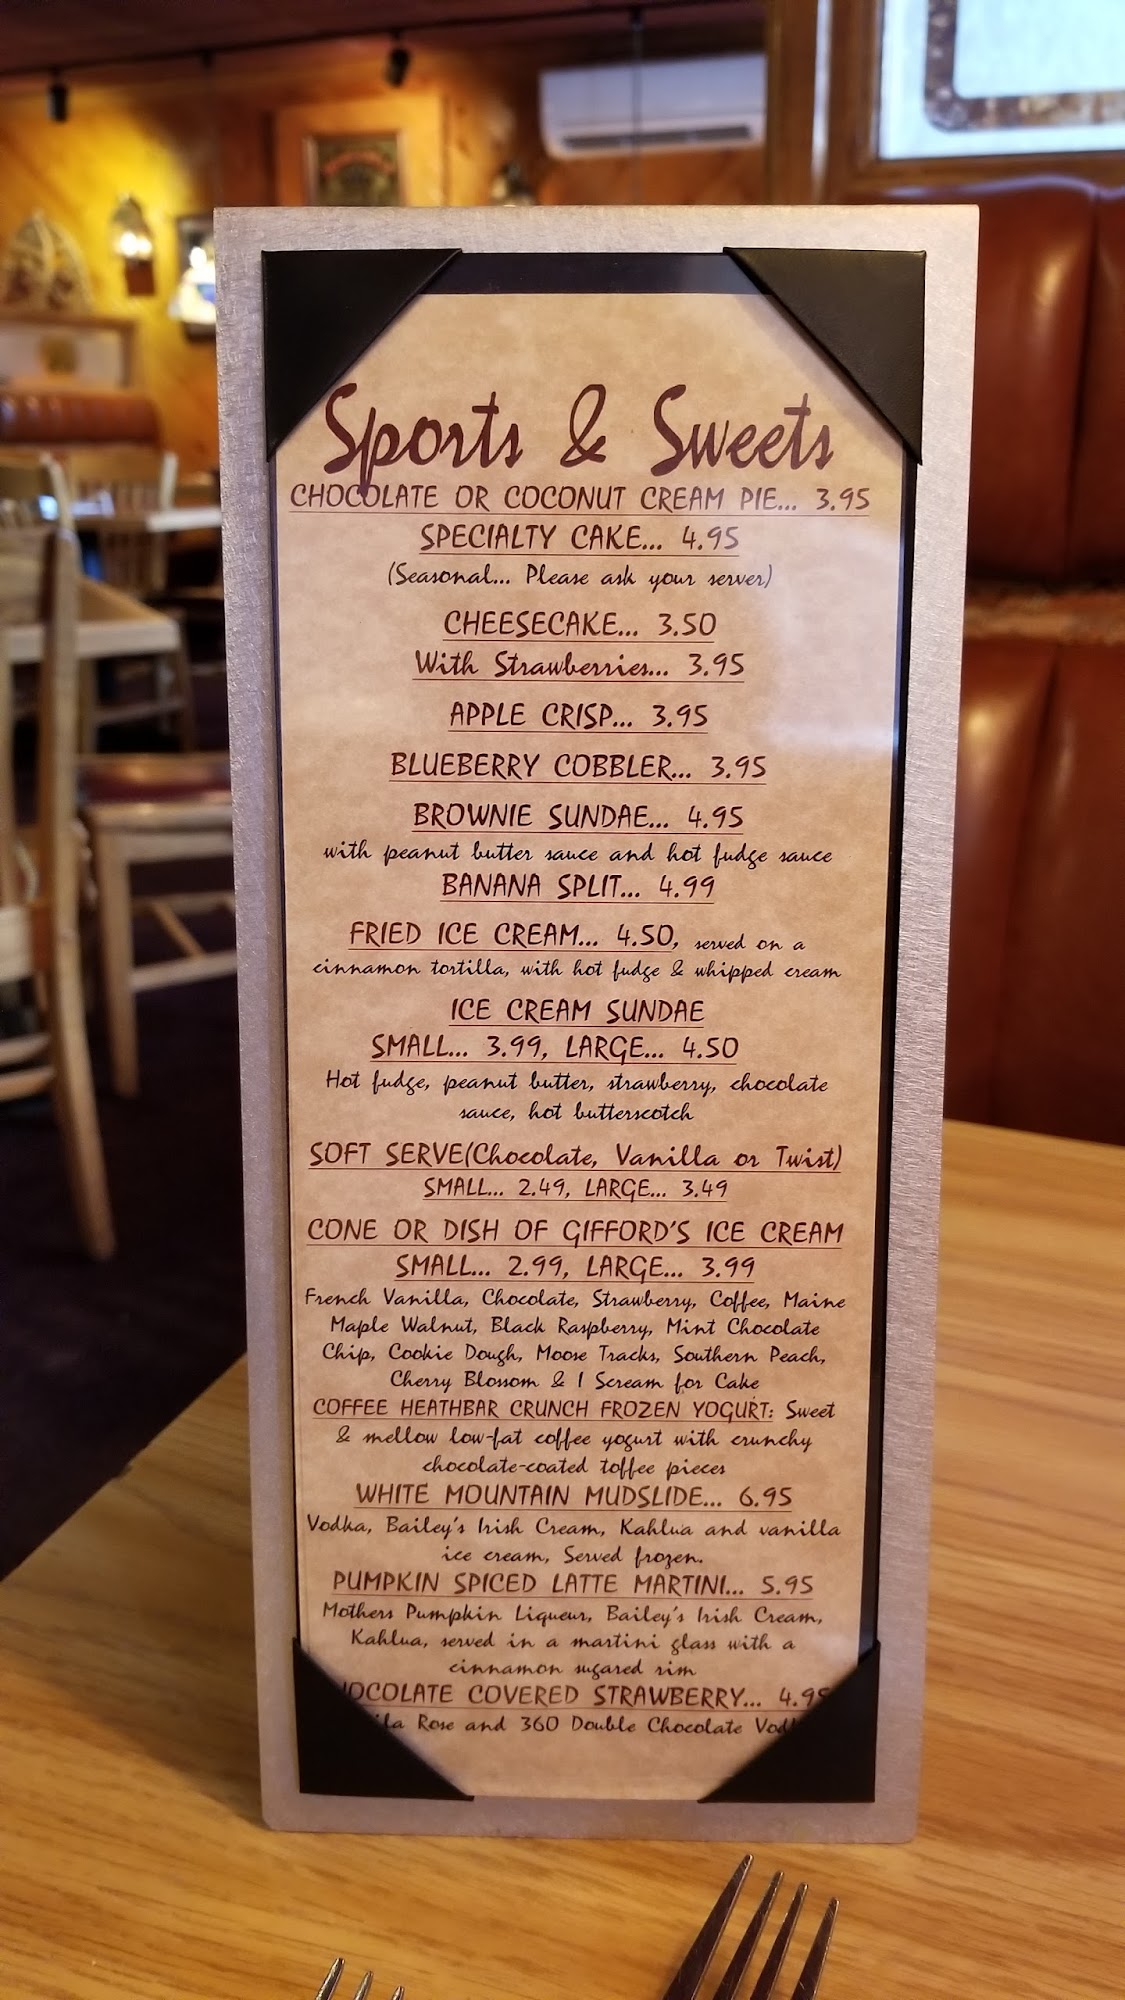 Sports & Sweets
CHOCOLATE OR COCONUT CREAM PIE... 3.95
SPECIALTY CAKE... 4.95
(Seasonal... Please ask your server)
CHEESECAKE... 3.50
With Strawberries... 3.95
APPLE CRISP... 3.95
BLUEBERRY COBBLER... 3.95
BROWNIE SUNDAE... 4.95
with peanut butter sauce and hot fudge sauce
BANANA SPLIT... 4.99
FRIED ICE CREAM... 4.50, served on a
cinnamon tortilla, with hot fudge & whipped cream
ICE CREAM SUNDAE
SMALL... 3.99, LARGE... 4.50
Hot fudge, peanut butter, strawberry, chocolate
sauce, hot butterscotch
SOFT SERVE(Chocolate, Vanilla or Twist)
SMALL... 2.49, LARGE... 3.49
CONE OR DISH OF GIFFORD'S ICE CREAM
SMALL... 2.99, LARGE... 3.99
French Vanilla, Chocolate, Strawberry, Coffee, Maine
Maple Walnut, Black Raspberry, Mint Chocolate
Chip, Cookie Dough, Moose Tracks, Southern Peach,
Cherry Blossom & I Scream for Cake
COFFEE HEATHBAR CRUNCH FROZEN YOGURT: Sweet
& mellow low-fat coffee yogurt with crunchy
chocolate-coated toffee pieces
WHITE MOUNTAIN MUDSLIDE... 6.95
Vodka, Bailey's Irish Cream, Kahlua and vanilla
ice cream, Served frozen.
PUMPKIN SPICED LATTE MARTINI... 5.95
Mothers Pumpkin Liqueur, Bailey's Irish Cream,
Kahlua, served in a martini glass with a
cinnamon sugared rim
OCOLATE COVERED STRAWBERRY... 4.95
la Rose and 360 Double Chocolate Vod